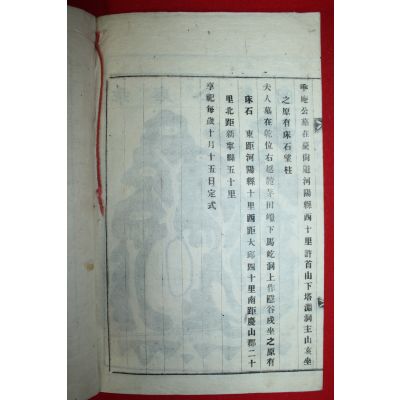 公墓在慶尙道河陽縣西十里許首山下塔淵洞主山亥坐
之原有床石望柱
夫人墓在乾位右越龍茅田嶝下馬乾洞上作隱谷戌坐之原有
床石　東距河陽縣十里西距大邱四十里南距慶山郡二十
里北距新寧縣五十里
享祀每歲十月十五日定式